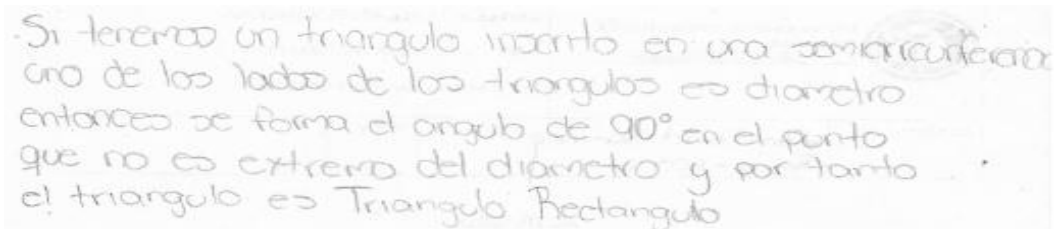 Si tenemos un triangulo inscrito en una semicircunferencia
uno de los lados de los triangulos es diametro
entonces se forma el angulo de 90° en el punto
que no es extremo del diametro y por tanto
el triangulo es Triangulo Rectangulo